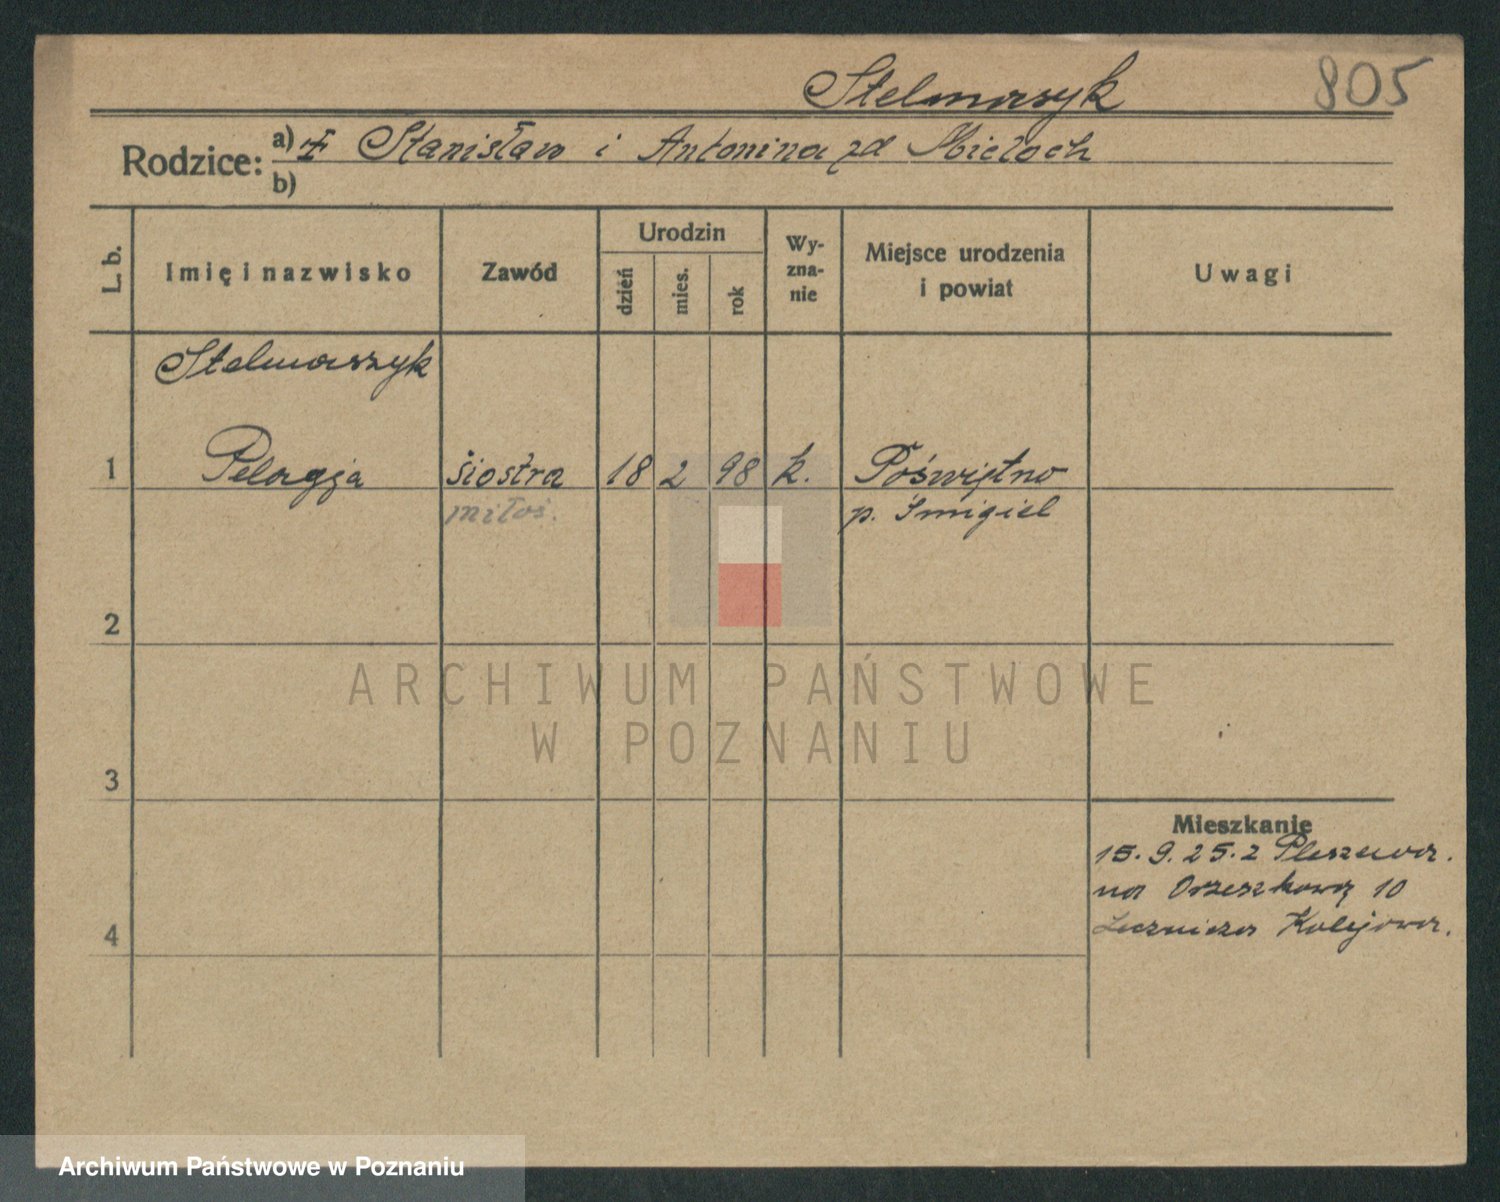 Stelmaszyk 805
Rodzice: a) Stanisław i Antonina zd Mieloch
b)
L. b. Imię i nazwisko Zawód Urodzin dzień mies. rok Wyznanie Miejsce urodzenia i powiat Uwagi
Stelmaszyk
1 Pelagja siostra 18 2 98 k. Poświętno
miłoś. p. Śmigiel
2
3
Mieszkanie
15. 9. 25. z Pleszewa.
na Orzeszkową 10
4 Lecznica Kolejowa.
ARCHIWUM PAŃSTWOWE
W POZNANIU
Archiwum Państwowe w Poznaniu